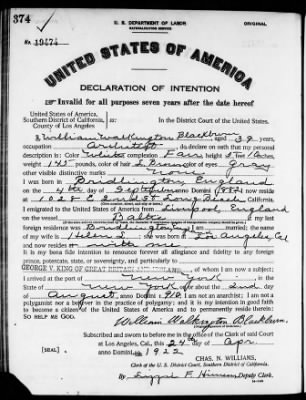 374
U. S. DEPARTMENT OF LABOR
NATURALIZATION SERVICE
ORIGINAL
No. 19474
UNITED STATES OF AMERICA
DECLARATION OF INTENTION
Invalid for all purposes seven years after the date hereof
United States of America,
Southern District of California,
County of Los Angeles
ss:
In the District Court of the United States.
I, William Walkington Blackburn, aged 39 years,
occupation Architect, do declare on oath that my personal
description is: Color White, complexion Fair, height 5 feet 10 inches,
weight 145 pounds, color of hair L. Brown, color of eyes gray
other visible distinctive marks none
I was born in Bridlington, England
on the 4th day of September, anno Domini 1882; I now reside
at 1028 E. 2nd St. Long Beach, California.
I emigrated to the United States of America from Liverpool England
on the vessel Baltic; my last
foreign residence was Bridlington, Eng.; I am married; the name
of my wife is Helen L; she was born at Los Angeles, Cal
and now resides at with me.
It is my bona fide intention to renounce forever all allegiance and fidelity to any foreign
prince, potentate, state, or sovereignty, and particularly to
GEORGE V. KING OF GREAT BRITAIN AND IRELAND, of whom I am now a subject;
I arrived at the port of New York, in the
State of New York, on or about the 2nd day
of August, anno Domini 1910; I am not an anarchist; I am not a
polygamist nor a believer in the practice of polygamy; and it is my intention in good faith
to become a citizen of the United States of America and to permanently reside therein:
SO HELP ME GOD.
William Walkington Blackburn
Subscribed and sworn to before me in the office of the Clerk of said Court
at Los Angeles, Cal., this 24th day of Apr.
anno Domini 1922
[SEAL]
CHAS. N. WILLIAMS,
Clerk of the U. S. District Court, Southern District of California.
By, Deputy Clerk.